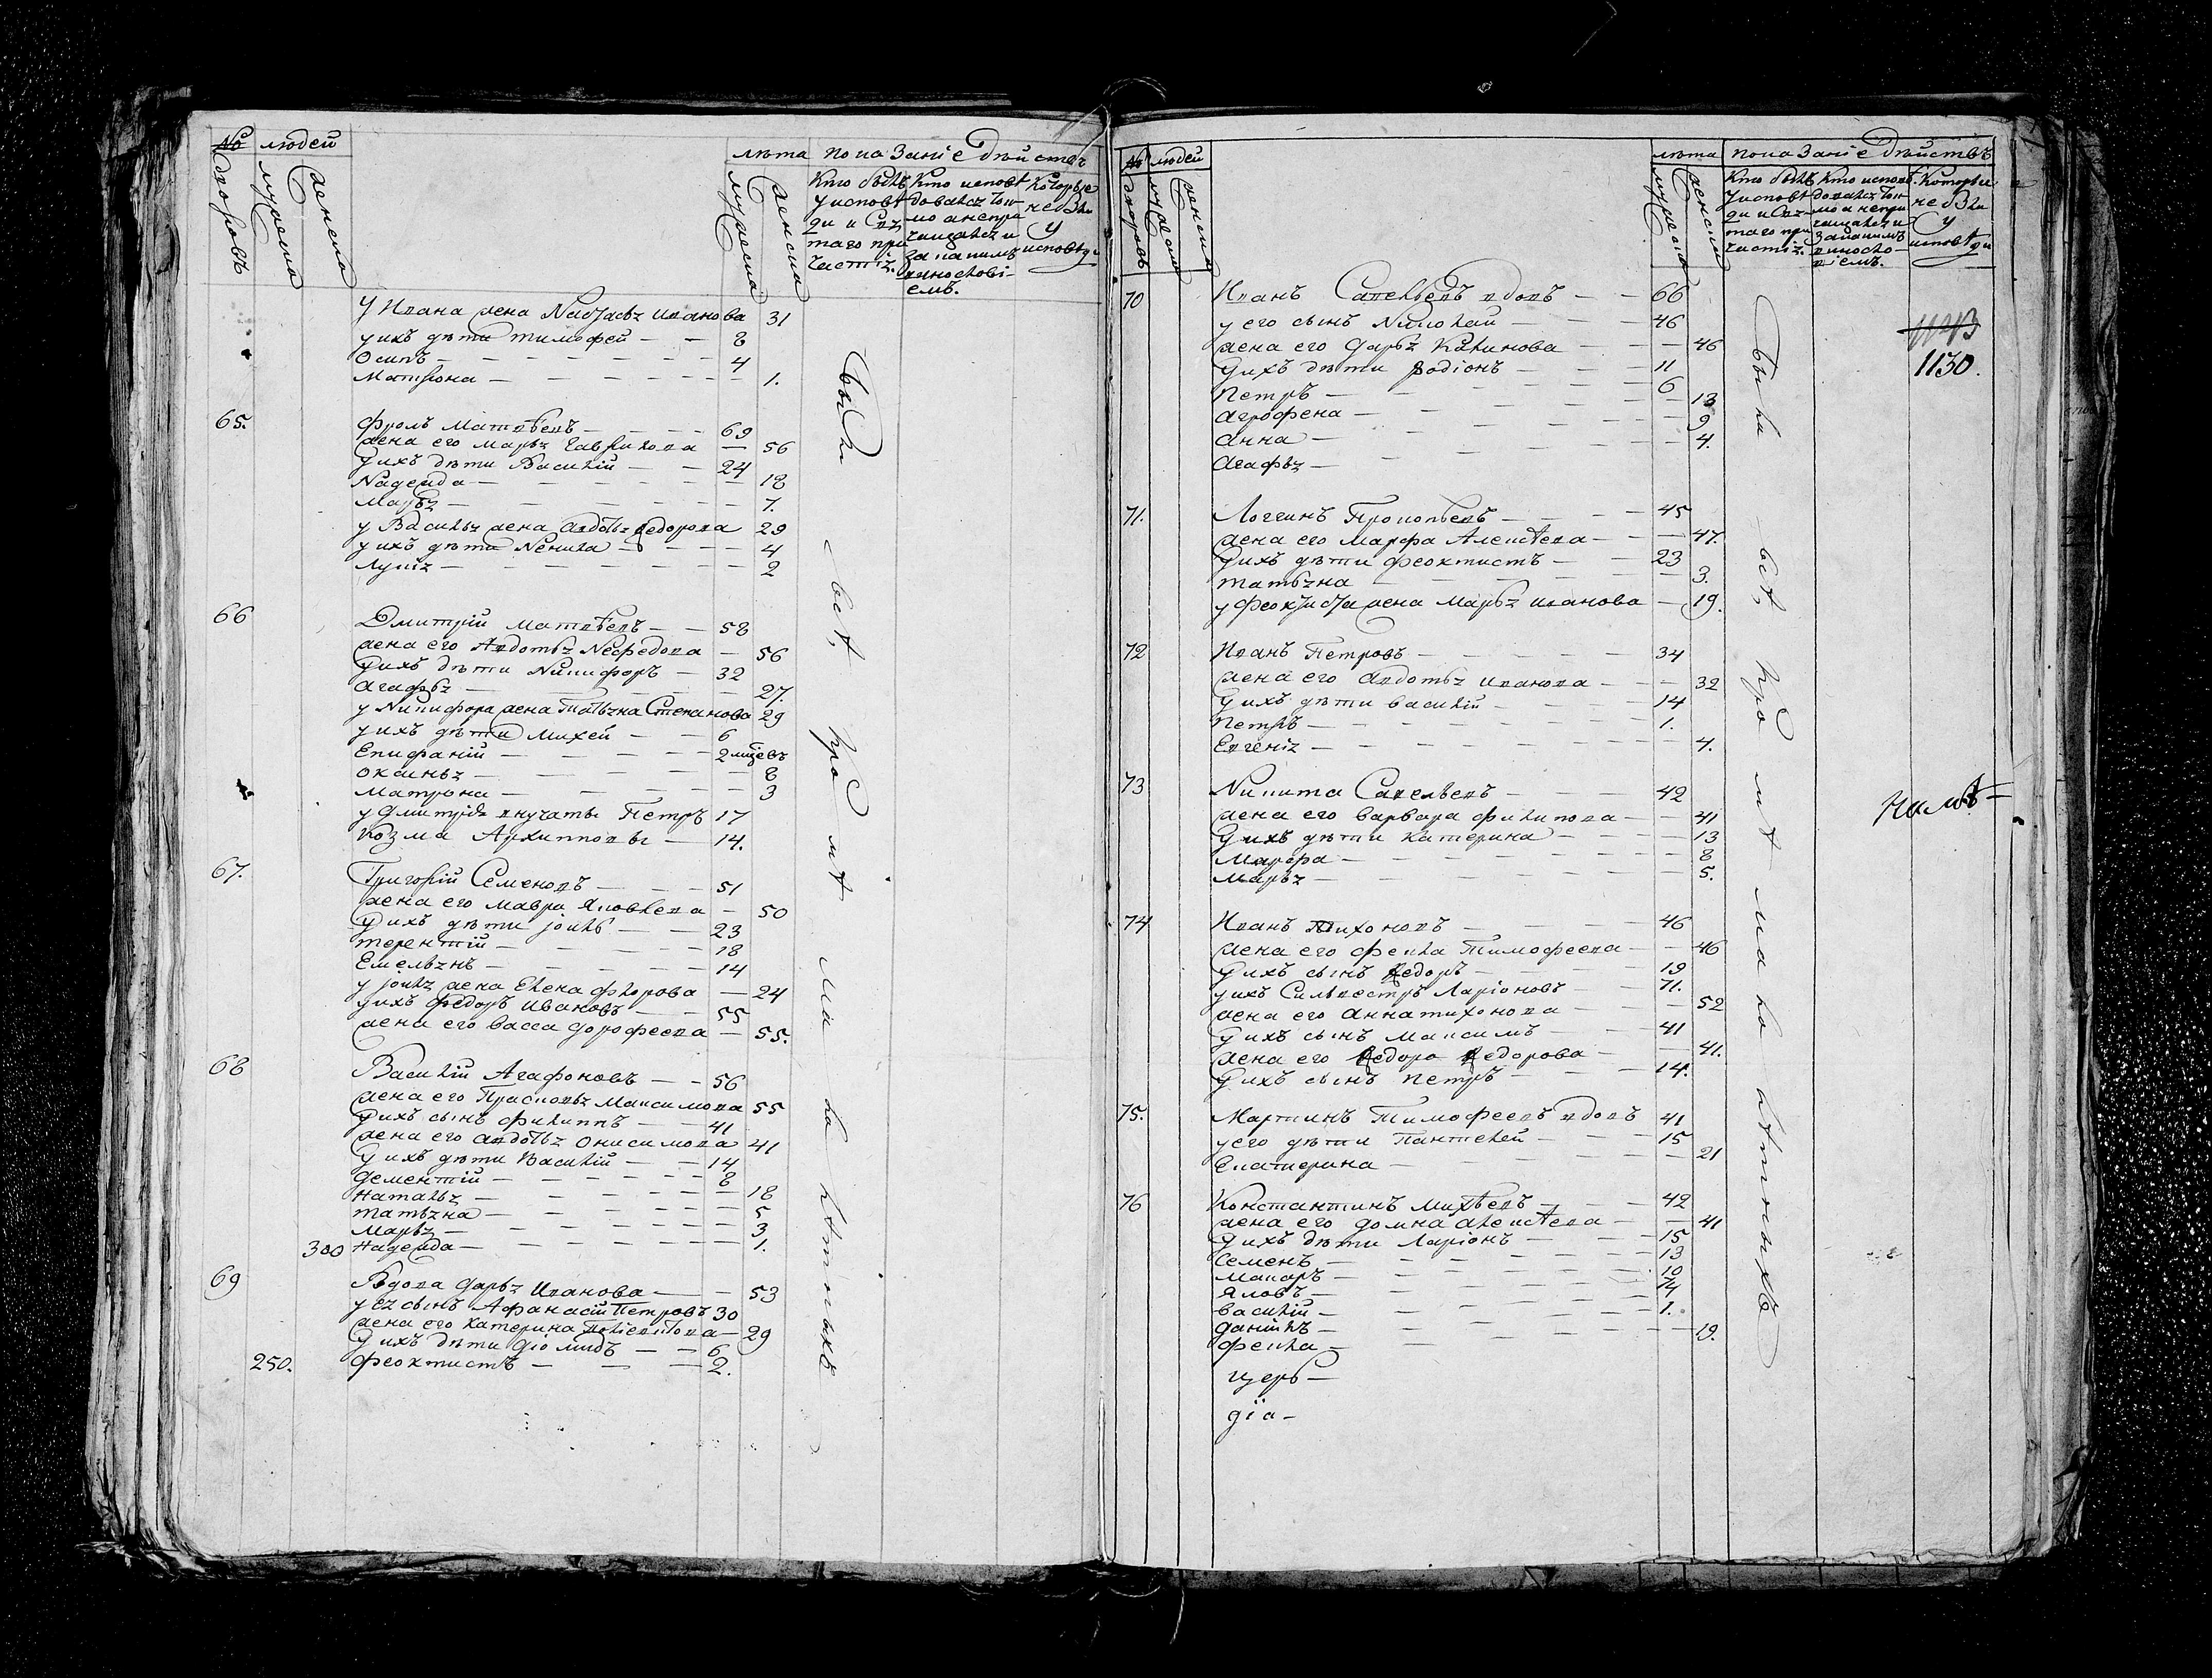 № дворовъ людей мужеска женска лѣта мужеска женска показаніе дѣйствъ
Кто былъ у исповѣди и святаго причастія.
Кто исповѣдовался токмо а не причащался и за какимъ виносло­віемъ.
Которые не были у исповѣди
У Ивана жена Надѣзья Иванова 31
у ихъ дѣти Тимофей — — 8
Осипъ — — — 4
Матрона — — — 1.
65. Фролъ Матвѣевъ — — 69
жена его Марья Гаврилова — 56
У ихъ дѣти Василій — — 24
Надежда — — — 18
Марья — — — 7.
у Василья жена Авдотья Ѳедорова 29
у ихъ дѣти Ненила — — — 4
Лукія — — — 2
66 Дмитрій Матвѣевъ — — 58
жена его Авдотья Несфедова — 56
У ихъ дѣти Никифоръ — 32
Агафья — — — 27.
у Никифора жена Татьяна Степанова 29
у ихъ дѣти Михей — — 6
Епифаній — — — 2 мѣсцевъ
Оксинья — — — 8
Матрона — — — 3
у Дмитрія внучаты Петръ 17
Козма Архиповы — 14.
67. Григорій Семеновъ — — — 51
жена его Мавра Яковлева — 50
У ихъ дѣти Іоиль — — 23
Терентій — — — 18
Емельянъ — — — 14
у Іоиля жена Елена Флорова — 24
у ихъ Федоръ Ивановъ — — 55
жена его Васса Дорофеева — 55.
68 Василій Агафоновъ — — 56
жена его Прасковья Максимова 55
У ихъ сынъ Филиппъ — — 41
жена его Авдотья Онисимова 41
У ихъ дѣти Василій — — 14
Дементій — — — 8
Наталья — — — 18
Татьяна — — — 5
Марья — — — 3
300 Надежда — — — 1.
69 Вдова Дарья Иванова — — 53
у ея сынъ Афанасій Петровъ 30
жена его Катерина Поліевктова — 29
У ихъ дѣти Діомидъ — — 6
250. Феоктистъ — — — 2.
были всѣ, кромѣ малолѣтныхъ
№ дворовъ людей мужеска женска лѣта мужеска женска показаніе дѣйствъ
Кто былъ у исповѣди и святаго причастія.
Кто исповѣдовался токмо а не причащался и за какимъ виносло­віемъ.
Которые не были у исповѣди
70 Иванъ Савельевъ вдовъ — — 66
у его сынъ Николай — — — 46
жена его Дарья Калинова — — 46
У ихъ дѣти Родіонъ — — — 11
Петръ — — — 6
Агрофена — — — 13
Анна — — — 9
Агафья — — — 4.
1130.
71. Логгинъ Прокопьевъ — — — 45
жена его Марфа Алексѣева — — 47.
У ихъ дѣти Феоктистъ — — 23
Татьяна — — — 3.
у Феоктиста жена Марья Иванова — 19.
72 Иванъ Петровъ — — — 34
жена его Авдотья Иванова — — 32
У ихъ дѣти Василій — — — 14
Петръ — — — 1.
Евгенія — — — 4.
73 Никита Савельевъ — — — 42
жена его Варвара Филипова — — 41
У ихъ дѣти Катерина — — — 13
Марфа — — — 8
Марья — — — 5.
74 Иванъ Тихоновъ — — — 46
жена его Фекла Тимофеева — — 46
У ихъ сынъ Ѳедоръ — — — 19
у ихъ Сильвестръ Ларіоновъ — — 71.
жена его Анна Тихонова — — 52
У ихъ сынъ Максимъ — — 41
жена его Ѳедора Ѳедорова — — 41.
У ихъ сынъ Петръ — — — 14.
75. Мартинъ Тимофеевъ вдовъ 41
у его дѣти Пантелей — — 15
Екатерина — — — 21
76 Константинъ Михѣевъ — — — 42
жена его Домна Алексѣева — — 41
У ихъ дѣти Ларіонъ — — 15
Семенъ — — — 13
Макаръ — — — 10
Яковъ — — —
Василій — — — 1.
Даніилъ — — —
Фекла — — — 19.
были всѣ, кромѣ малолѣтныхъ
дїа-